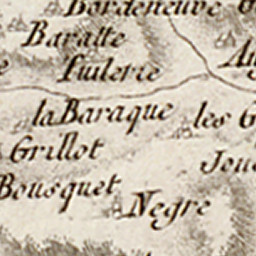 Bordeneuve
Baratte
Tuilerie
la Baraque
les G
Grillot
Jou
Bousquet
Negre